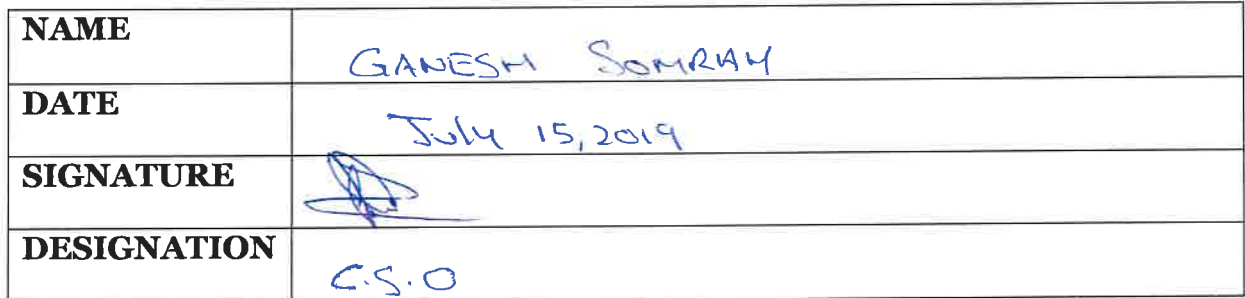 NAME
GANESH SOMRAH
DATE
July 15, 2019
SIGNATURE
DESIGNATION
C.S.O